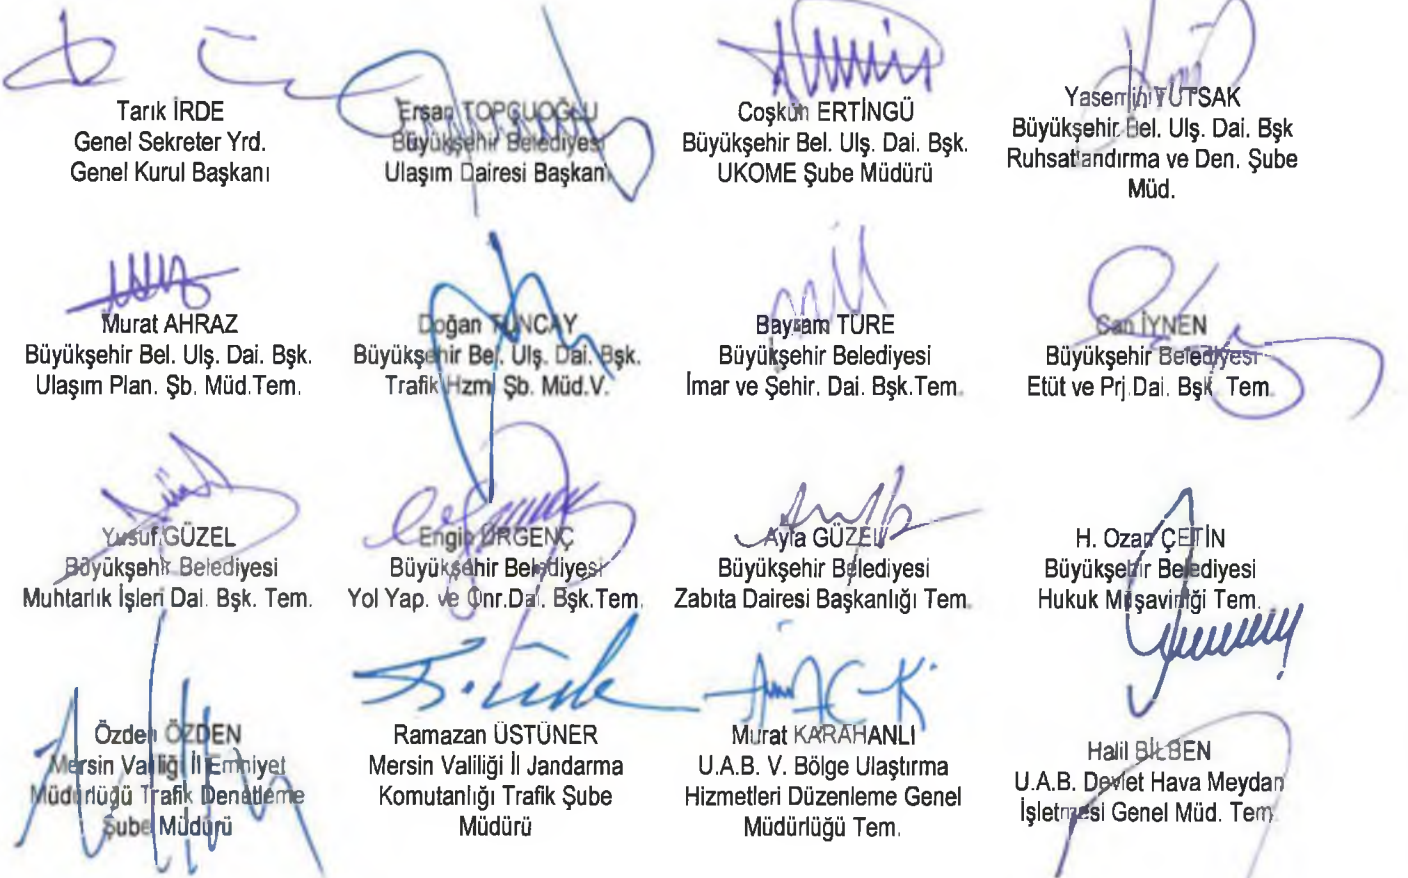 Tarık İRDE
Genel Sekreter Yrd.
Genel Kurul Başkanı
Ersan TOPÇUOĞLU
Büyükşehir Belediyesi
Ulaşım Dairesi Başkanı
Coşkun ERTİNGÜ
Büyükşehir Bel. Ulş. Dai. Bşk.
UKOME Şube Müdürü
Yasemin TUTSAK
Büyükşehir Bel. Ulş. Dai. Bşk
Ruhsatlandırma ve Den. Şube
Müd.
Murat AHRAZ
Büyükşehir Bel. Ulş. Dai. Bşk.
Ulaşım Plan. Şb. Müd.Tem.
Doğan TUNCAY
Büyükşehir Bel. Ulş. Dai. Bşk.
Trafik Hzm. Şb. Müd.V.
Bayram TÜRE
Büyükşehir Belediyesi
İmar ve Şehir. Dai. Bşk.Tem.
Can İYNEN
Büyükşehir Belediyesi
Etüt ve Prj.Dai. Bşk. Tem.
Yusuf GÜZEL
Büyükşehir Belediyesi
Muhtarlık İşleri Dai. Bşk. Tem.
Engin ÜRGENÇ
Büyükşehir Belediyesi
Yol Yap. ve Onr.Dai. Bşk.Tem.
Ayla GÜZEL
Büyükşehir Belediyesi
Zabıta Dairesi Başkanlığı Tem.
H. Ozan ÇETİN
Büyükşehir Belediyesi
Hukuk Müşavirliği Tem.
Özden ÖZDEN
Mersin Valiliği İl Emniyet
Müdürlüğü Trafik Denetleme
Şube Müdürü
Ramazan ÜSTÜNER
Mersin Valiliği İl Jandarma
Komutanlığı Trafik Şube
Müdürü
Murat KARAHANLI
U.A.B. V. Bölge Ulaştırma
Hizmetleri Düzenleme Genel
Müdürlüğü Tem.
Halil BİLBEN
U.A.B. Devlet Hava Meydan
İşletmesi Genel Müd. Tem